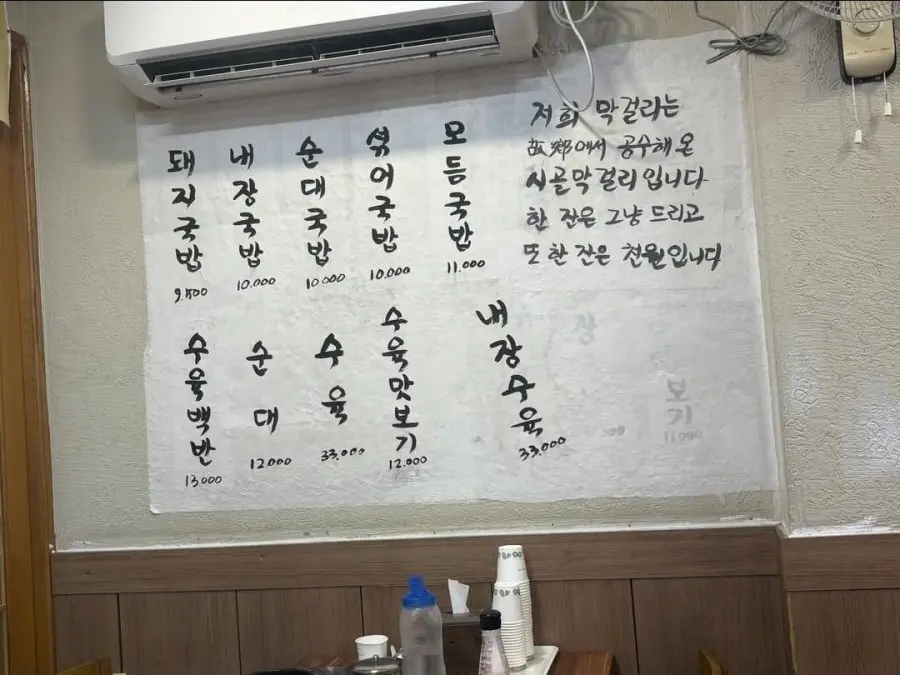 돼지국밥
9.500
내장국밥
10.000
순대국밥
10.000
섞어국밥
10.000
모듬국밥
11.000
저희 막걸리는
故郷에서 공수해 온
시골막걸리입니다
한 잔은 그냥 드리고
또 한 잔은 천원입니다
수육백반
13000
순대
12000
수육
33.000
수육맛보기
12.000
내장수육
33.000
장
보기
11.000